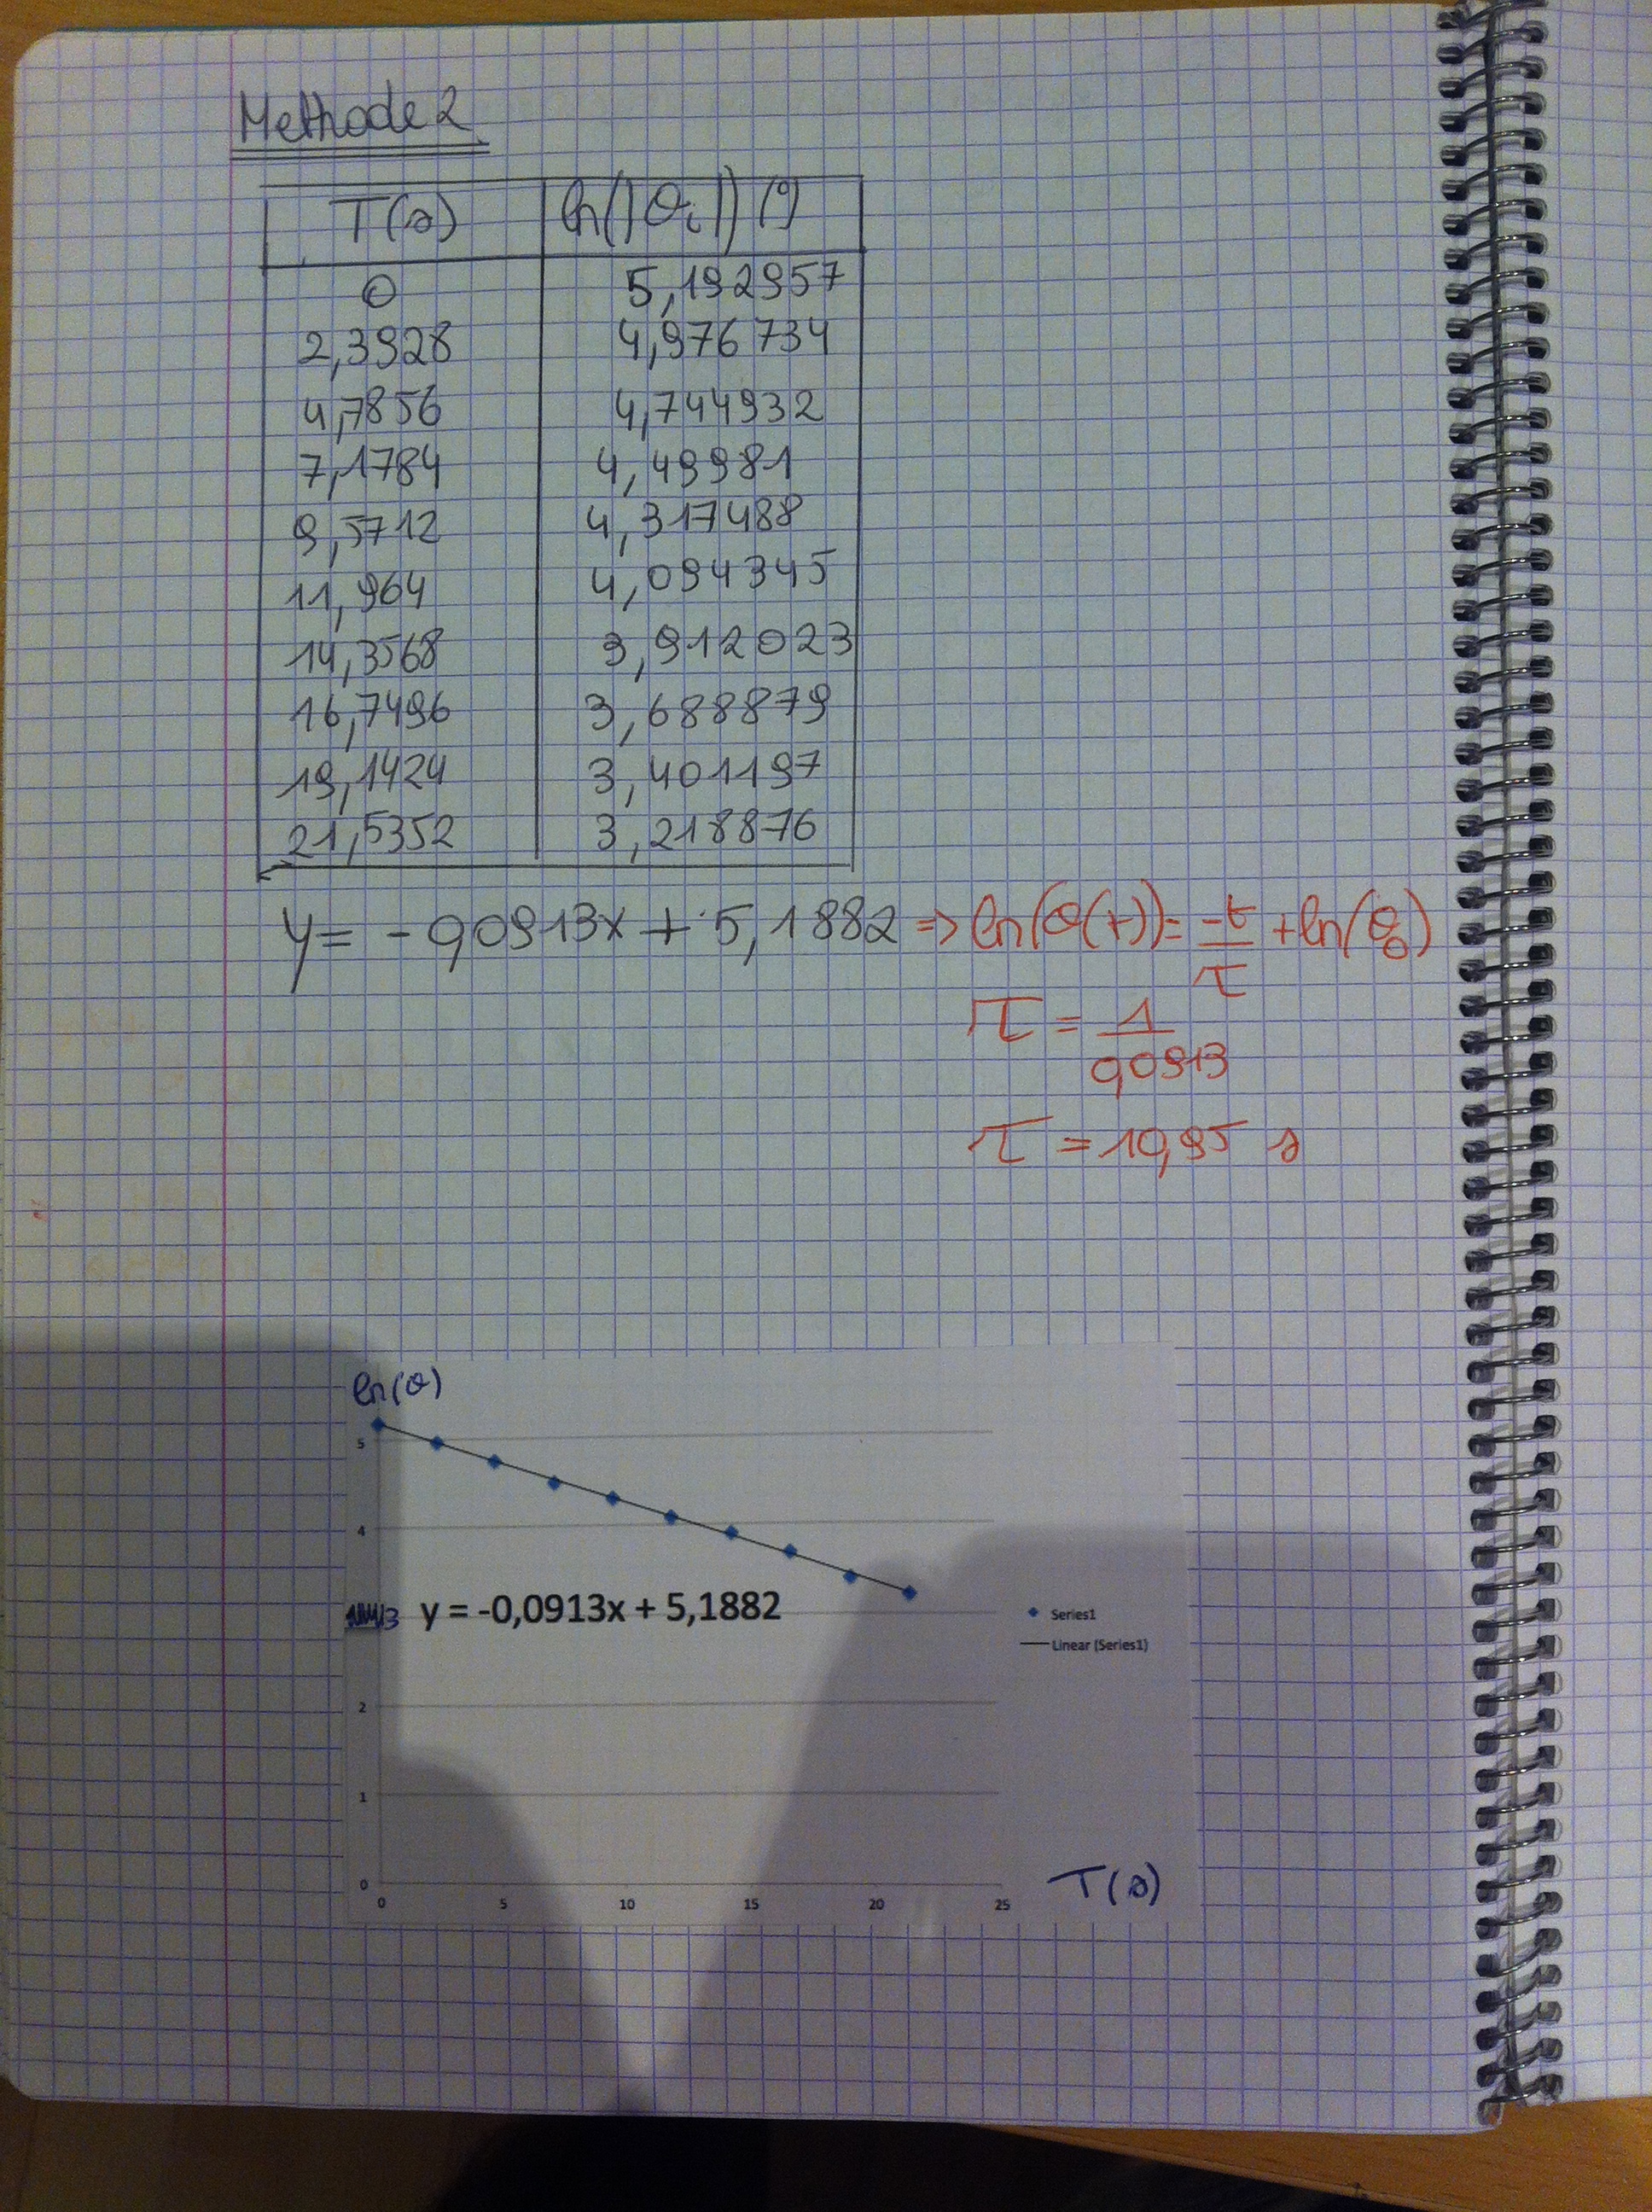 Methode 2
T(s) ln(|θi|) (°)
0 5,192957
2,3928 4,976734
4,7856 4,744932
7,1784 4,49981
9,5712 4,317488
11,964 4,094345
14,3568 3,912023
16,7496 3,688879
19,1424 3,401197
21,5352 3,218876
y = -0,0913x + 5,1882 => ln(θ(t)) = -t/τ + ln(θ0)
τ = 1/0,0913
τ = 10,95 s
ln(θ)
5
4
3 y = -0,0913x + 5,1882
Series1
Linear (Series1)
2
1
0
0 5 10 15 20 25
T(s)